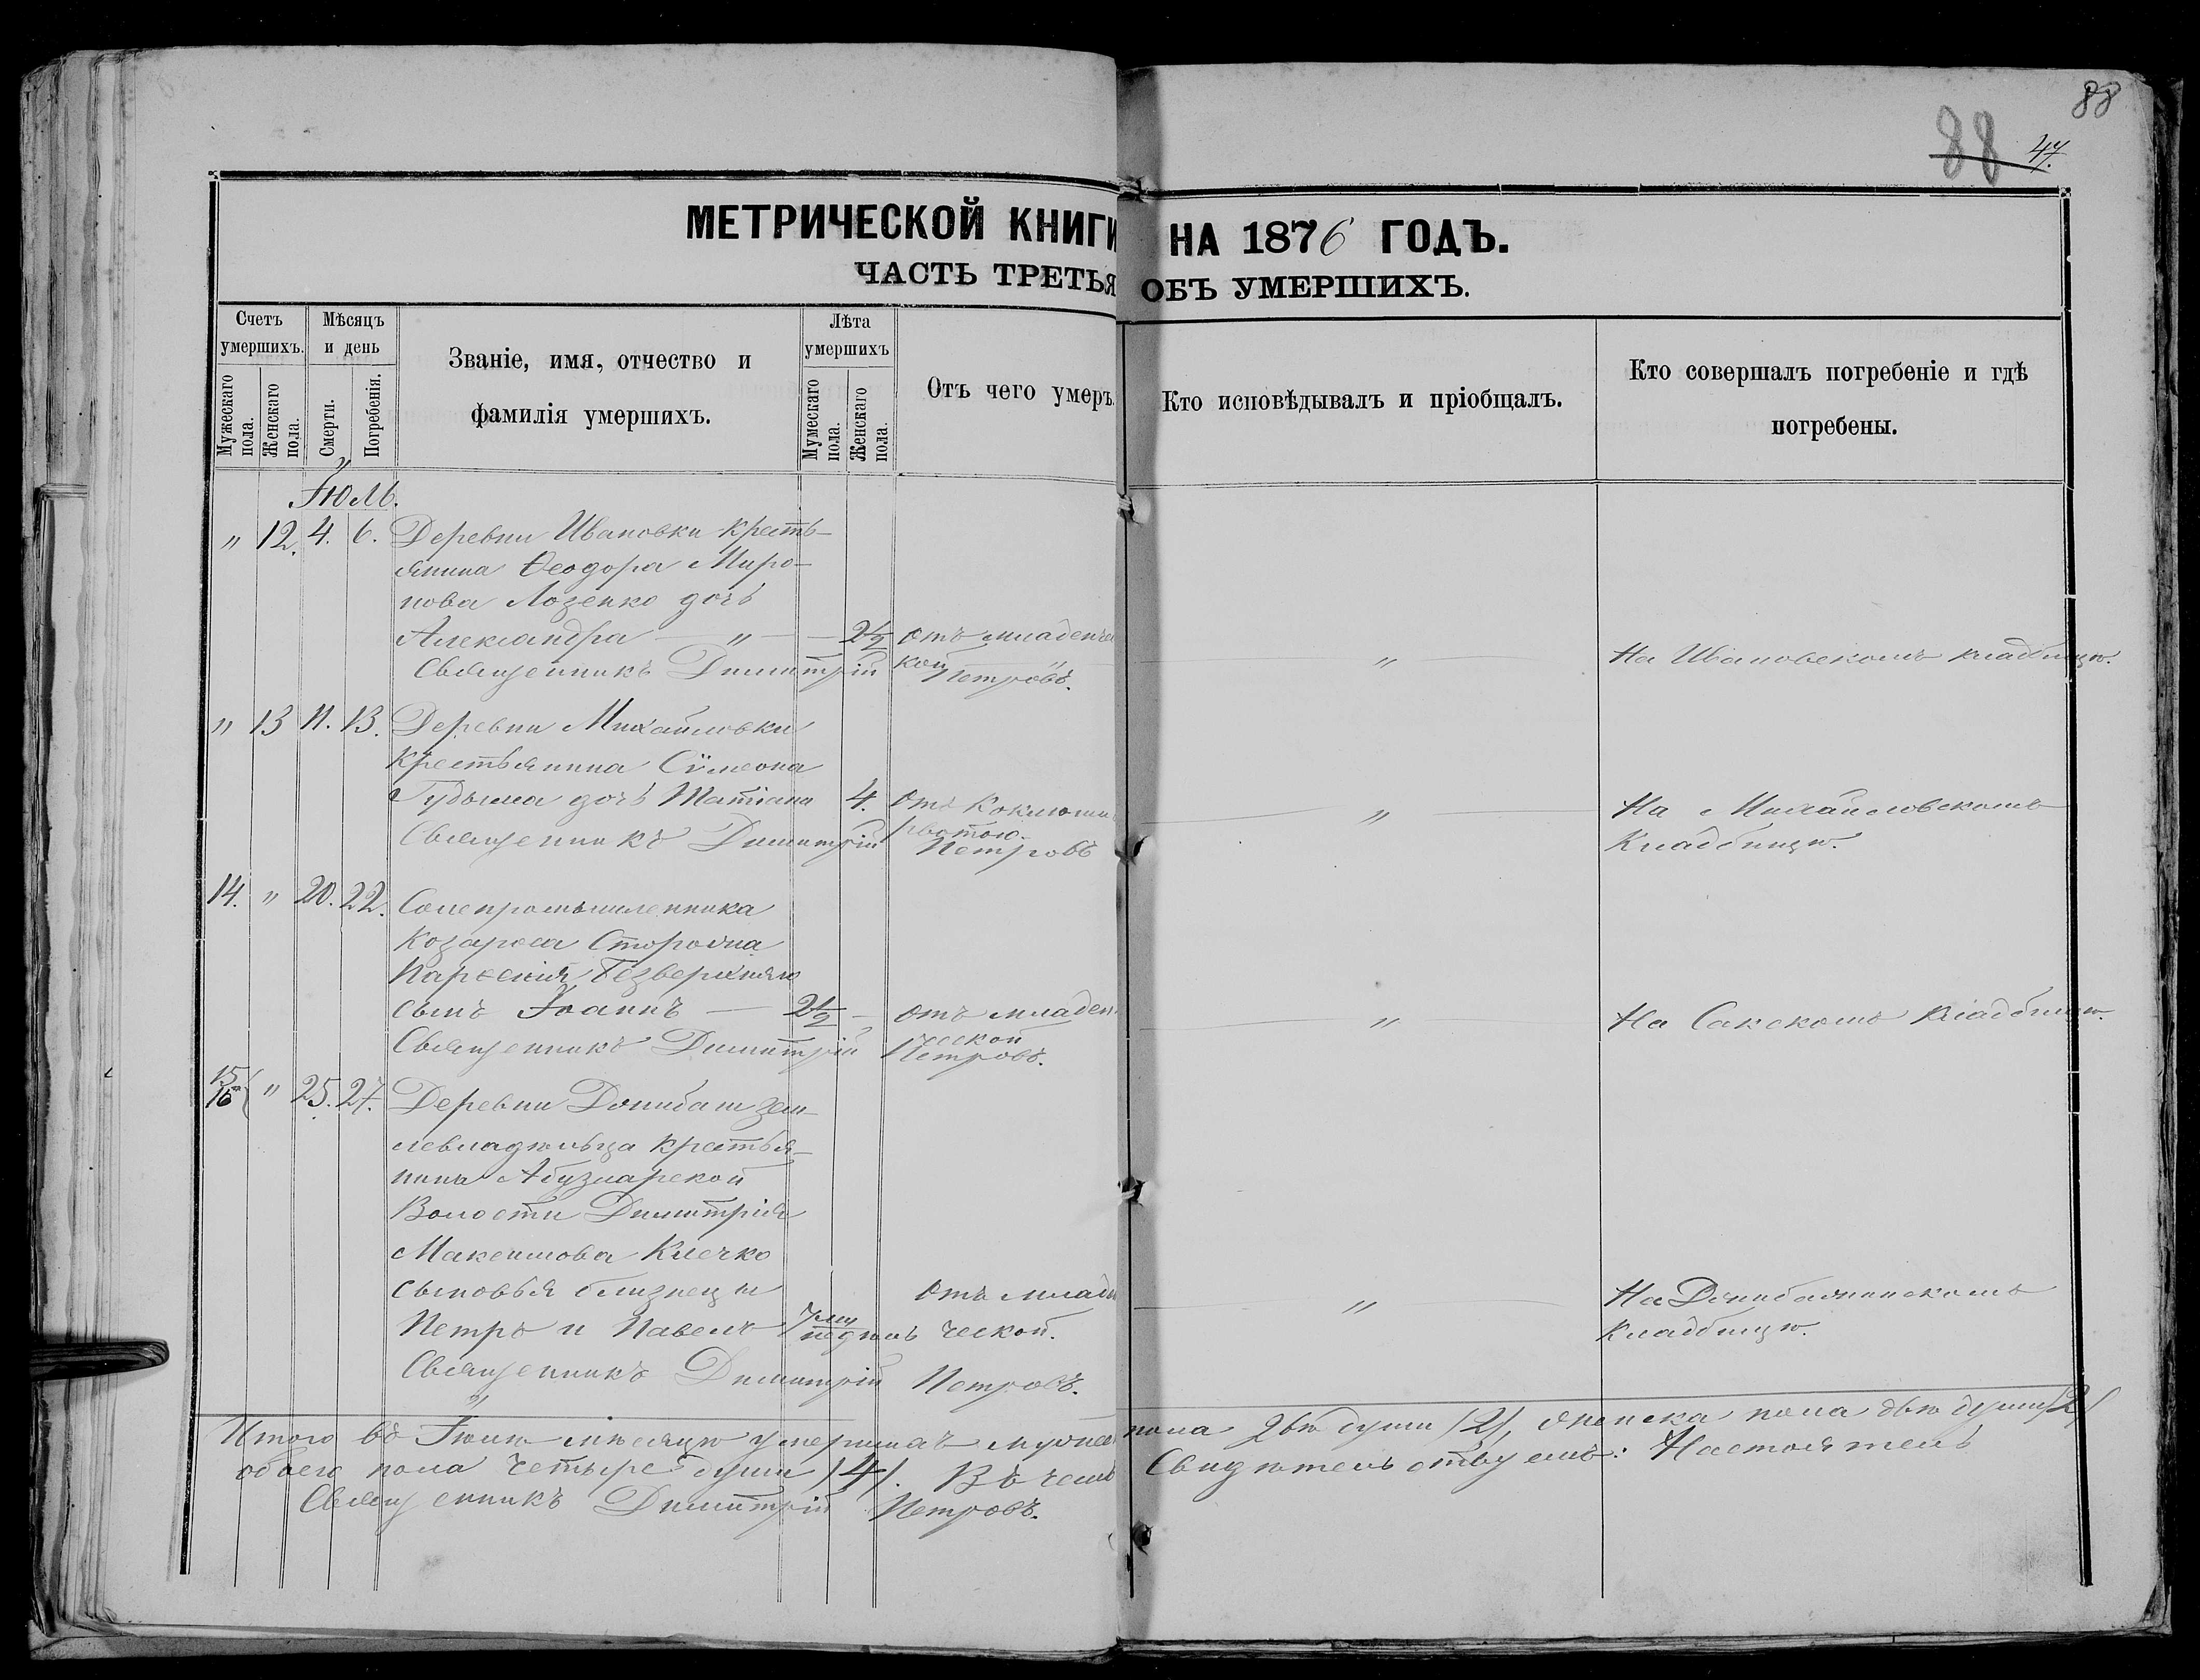 88
88 47.
МЕТРИЧЕСКОЙ КНИГИ НА 1876 ГОДЪ.
ЧАСТЬ ТРЕТЬЯ ОБЪ УМЕРШИХЪ.
Счетъ умершихъ.
Мужескаго пола.
Женскаго пола.
Мѣсяцъ и день
Смерти.
Погребенія.
Званіе, имя, отчество и
фамилія умершихъ.
Лѣта умершихъ
Мужескаго пола.
Женскаго пола.
Отъ чего умеръ.
Кто исповѣдывалъ и пріобщалъ.
Кто совершалъ погребеніе и гдѣ
погребены.
Іюль.
" 12. 4. 6. Деревни Ивановки кресть-
янина Ѳеодора Миро-
нова Лозенко дочь
Александра — " — — 2½ отъ младенчес " На Ивановскомъ кладбищѣ.
кой
Священникъ Димитрій Петровъ.
" 13 11. 13. Деревни Михайловки
крестьянина Сѵмеона
Гудыма дочь Татіана 4. Отъ Коклюша " На Михайловскомъ
рвотою. Кладбищѣ.
Священникъ Димитрій Петровъ
14. " 20. 22. Солепромышленника
сынъ Іоаннъ — 2½ — отъ младен " На Сакскомъ кладбищѣ.
ческой
Священникъ Димитрій Петровъ.
15 16 " 25. 27. Деревни зем-
левладѣльца крестья-
нина Абузларской
Волости Димитрія
Максимова Клечко
сыновья близнецы Отъ младен " На
Петръ и Павелъ 7ми недѣль ческой. Кладбищѣ.
Священникъ Димитрій Петровъ.
Итого въ Іюлѣ мѣсяцѣ умершихъ мужеска пола двѣ души /2/, женска пола двѣ души /2/
обоего пола четыре души /4/. Въ чемъ Свидѣтельствуемъ: Настоятель
Священникъ Димитрій Петровъ.